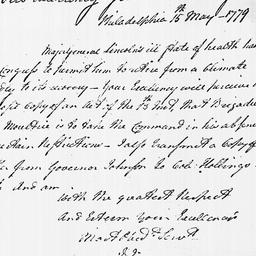 Philadelphia 15th May - 1779
Majorgeneral Lincoln's ill State of health has
ongress to permit him to retire from a Climate
to its recovery - Your Excellency will perceive
Copy of an Act of the Inst, that Brigadier
Moultrie is to take the Command in his absence
- I also transmit a Copy of
from Governor Johnson to Col: Hollings
and am
With the greatest Respect
and Esteem Your Excellencies
Most Obedt Servt.
J. J.